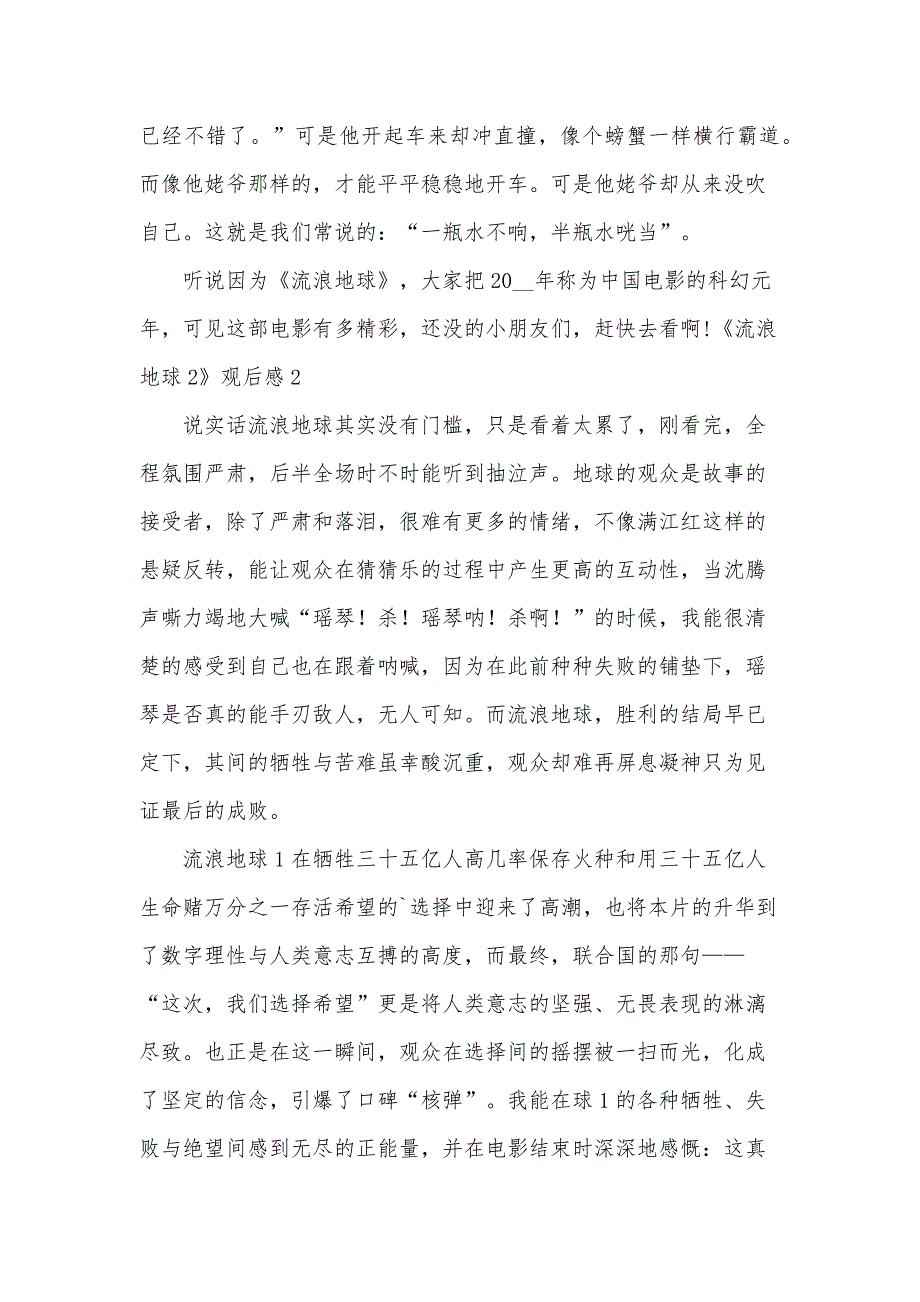 已经不错了。”可是他开起车来却冲直撞，像个螃蟹一样横行霸道。
而像他姥爷那样的，才能平平稳稳地开车。可是他姥爷却从来没吹
自己。这就是我们常说的：“一瓶水不响，半瓶水咣当”。
听说因为《流浪地球》，大家把 20__年称为中国电影的科幻元
年，可见这部电影有多精彩，还没的小朋友们，赶快去看啊!《流浪
地球 2》观后感 2
说实话流浪地球其实没有门槛，只是看着太累了，刚看完，全
程氛围严肃，后半全场时不时能听到抽泣声。地球的观众是故事的
接受者，除了严肃和落泪，很难有更多的情绪，不像满江红这样的
悬疑反转，能让观众在猜猜乐的过程中产生更高的互动性，当沈腾
声嘶力竭地大喊“瑶琴！杀！瑶琴呐！杀啊！”的时候，我能很清
楚的感受到自己也在跟着呐喊，因为在此前种种失败的铺垫下，瑶
琴是否真的能手刃敌人，无人可知。而流浪地球，胜利的结局早已
定下，其间的牺牲与苦难虽幸酸沉重，观众却难再屏息凝神只为见
证最后的成败。
流浪地球 1 在牺牲三十五亿人高几率保存火种和用三十五亿人
生命赌万分之一存活希望的`选择中迎来了高潮，也将本片的升华到
了数字理性与人类意志互搏的高度，而最终，联合国的那句——
“这次，我们选择希望”更是将人类意志的坚强、无畏表现的淋漓
尽致。也正是在这一瞬间，观众在选择间的摇摆被一扫而光，化成
了坚定的信念，引爆了口碑“核弹”。我能在球 1 的各种牺牲、失
败与绝望间感到无尽的正能量，并在电影结束时深深地感慨：这真